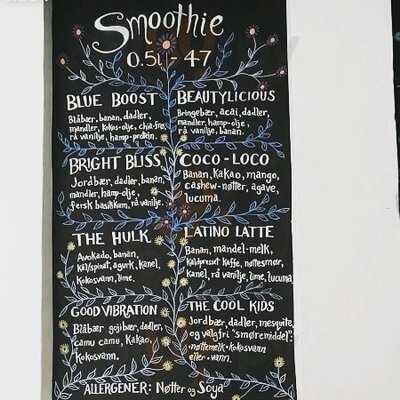 Smoothie
0.5l - 47
BLUE BOOST
Blåbær, banan, dadler,
mandler, kokos-olje, chia-frø,
rå vanilje, hamp-protein.
BEAUTYLICIOUS
Bringebær, acai, dadler,
mandler, hamp-olje,
rå vanilje, banan.
BRIGHT BLISS
Jordbær, dadler, banan,
mandler, hamp-olje,
fersk basilikum, rå vanilje.
COCO-LOCO
Banan, Kakao, mango,
cashew-nøtter, agave,
lucuma.
THE HULK
Avokado, banan,
kål/spinat, agurk, kanel,
Kokosvann, lime.
LATINO LATTE
Banan, mandel-melk,
Kaldpresset Kaffe, nøttesmør,
Kanel, rå vanilje, lime, lucuma
GOOD VIBRATION
Blåbær gojibær, dadler,
camu camu, Kakao,
Kokosvann.
THE COOL KIDS
Jordbær, dadler, mesquite,
og valgfri "smøremiddel":
·nøttemelk ·Kokosvann
eller ·vann.
ALLERGENER: Nøtter og Soya